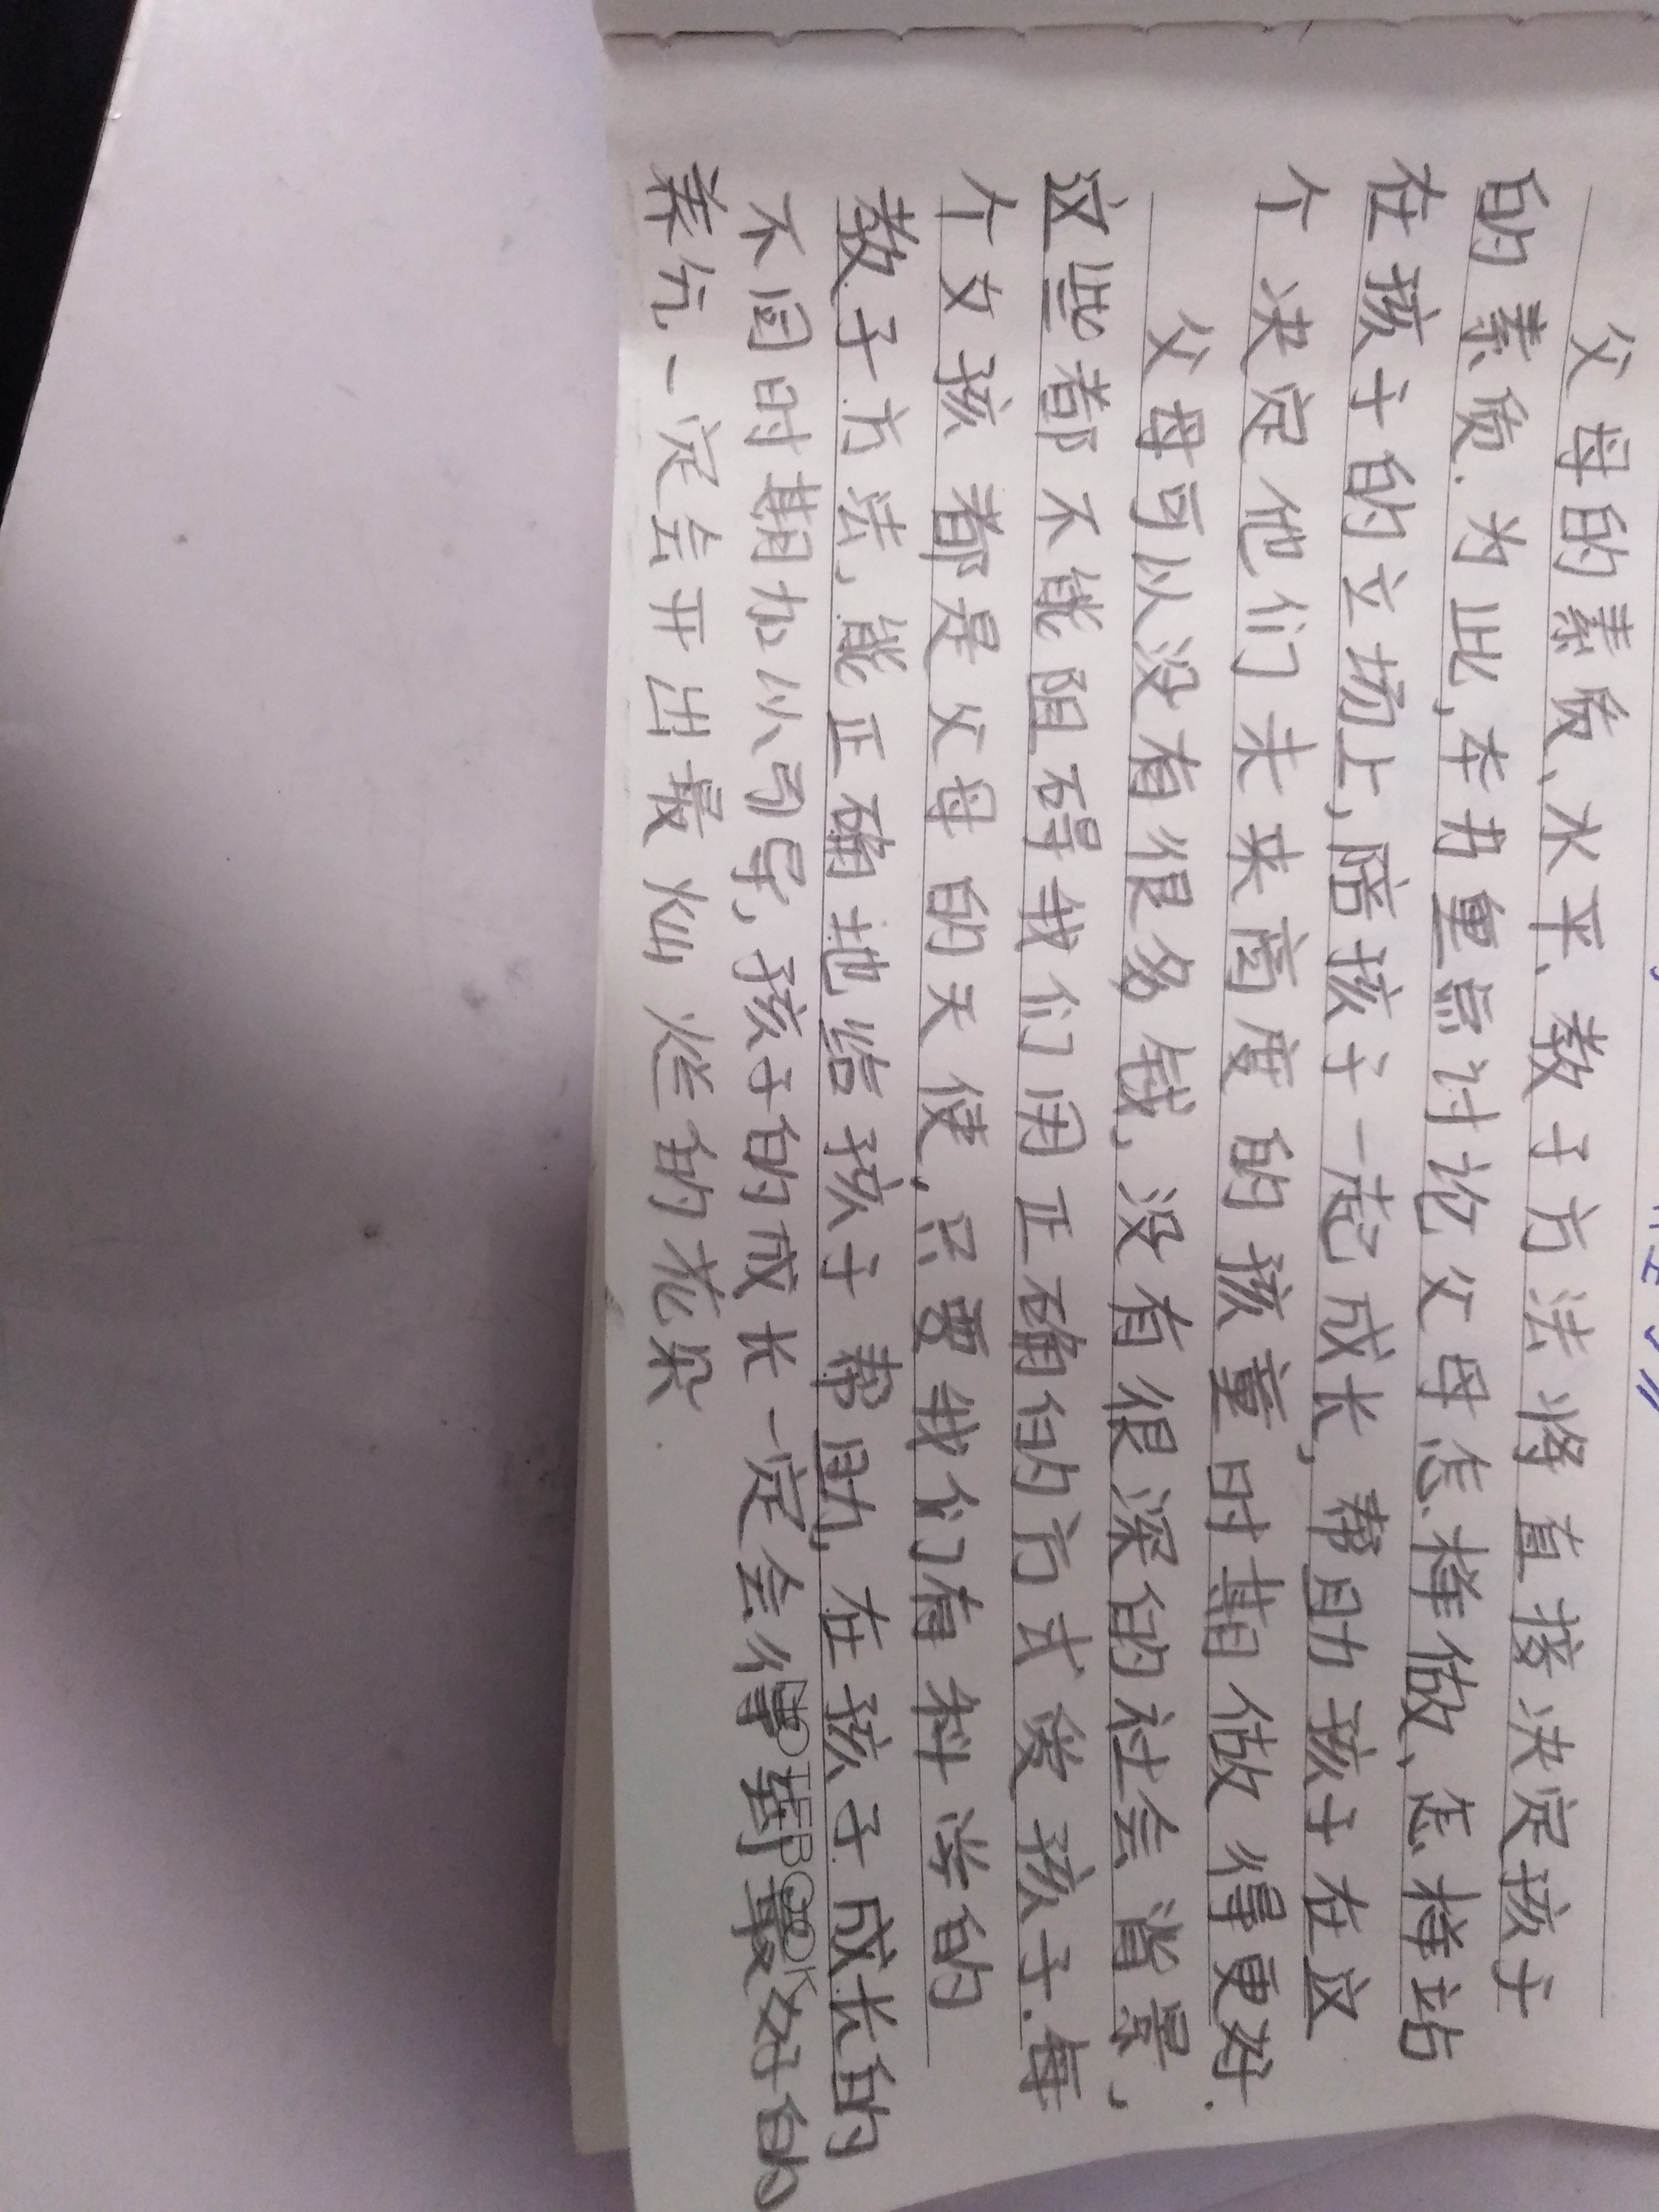 父母的素质、水平、教子方法将直接决定孩子
的素质.为此,本书重点讨论父母怎样做、怎样站
在孩子的立场上,陪孩子一起成长,帮助孩子在这
个决定他们未来高度的孩童时期做得更好.
父母可以没有很多钱,没有很深的社会背景,
这些都不能阻碍我们用正确的方式爱孩子.每
个女孩都是父母的天使,只要我们有科学的
教子方法,能正确地给孩子帮助,在孩子成长的
不同时期加以引导,孩子的成长一定会得到最好的
养分一定会开出最灿烂的花朵.
NOTEBOOK